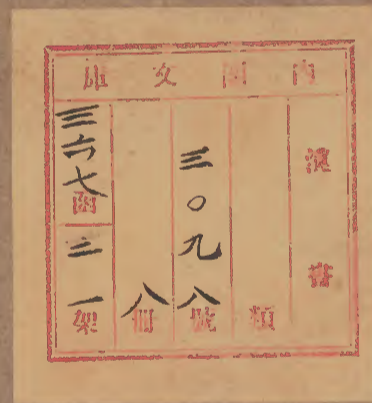 内閣文庫
漢書
類
三〇九八號
八冊
三六七函
二一架